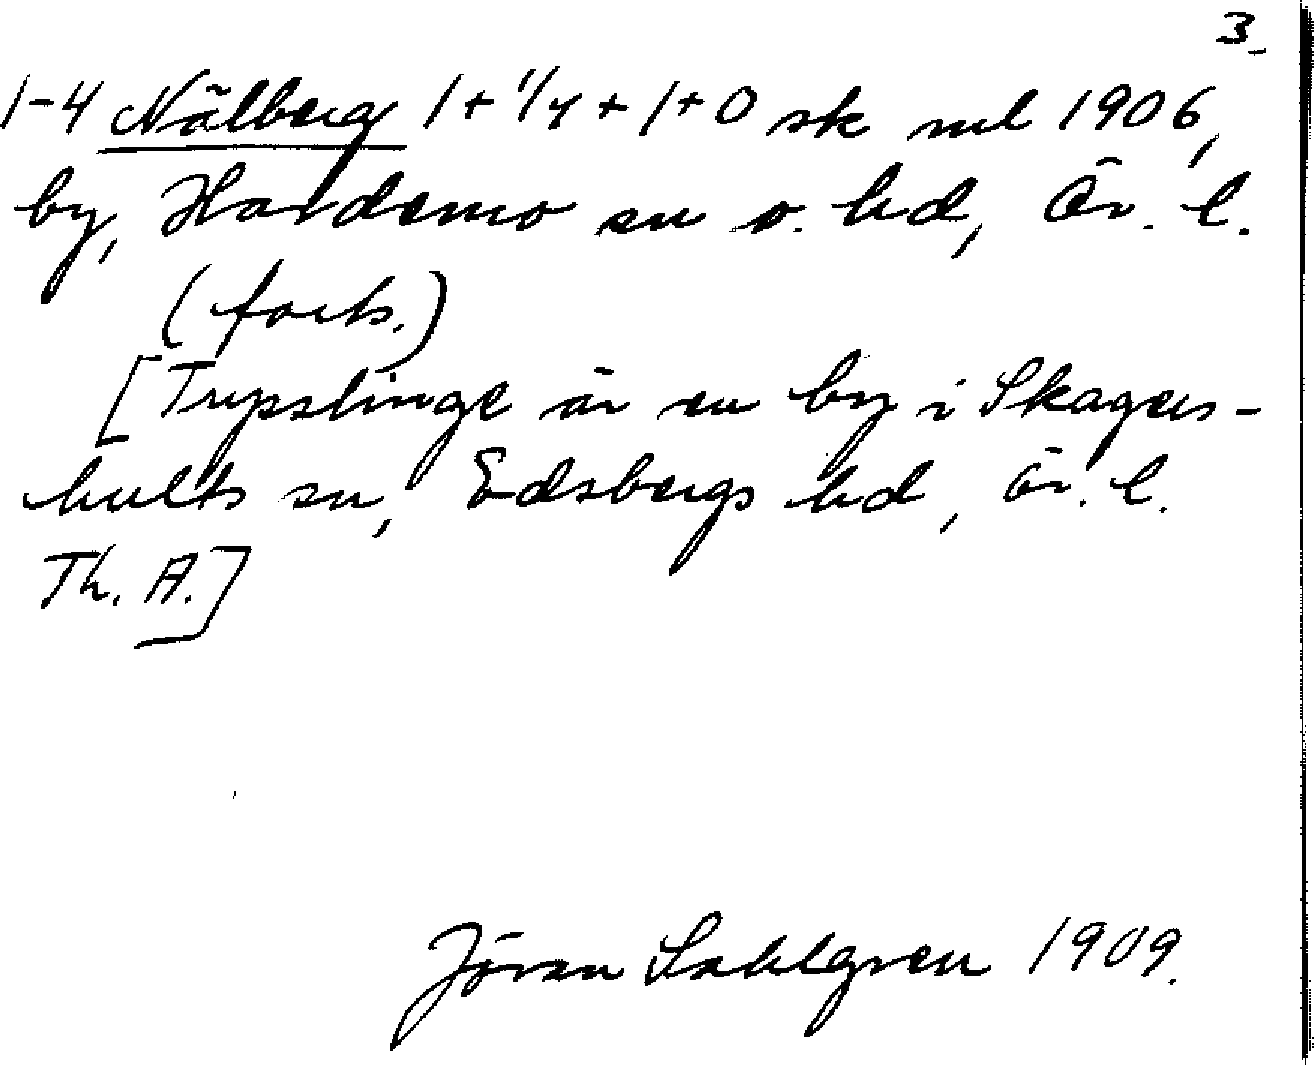 3.
1-4 Nälberg 1+1/4+1+0 sk ml 1906,
by, Hardemo sn o. hd, Ör. l.
(forts.)
[Trypslinge är en by i Skagers-
hults sn, Edsbergs hd, Ör. l.
Th. A.]
Jöran Sahlgren 1909.